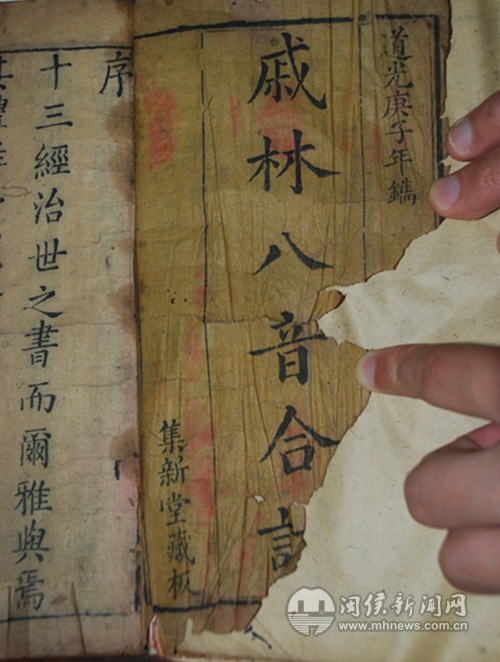 道光庚子年鐫
戚林八音合訂
集新堂藏板
序
十三經治世之書而爾雅與焉
闽侯新闻网
www.mhnews.com.cn